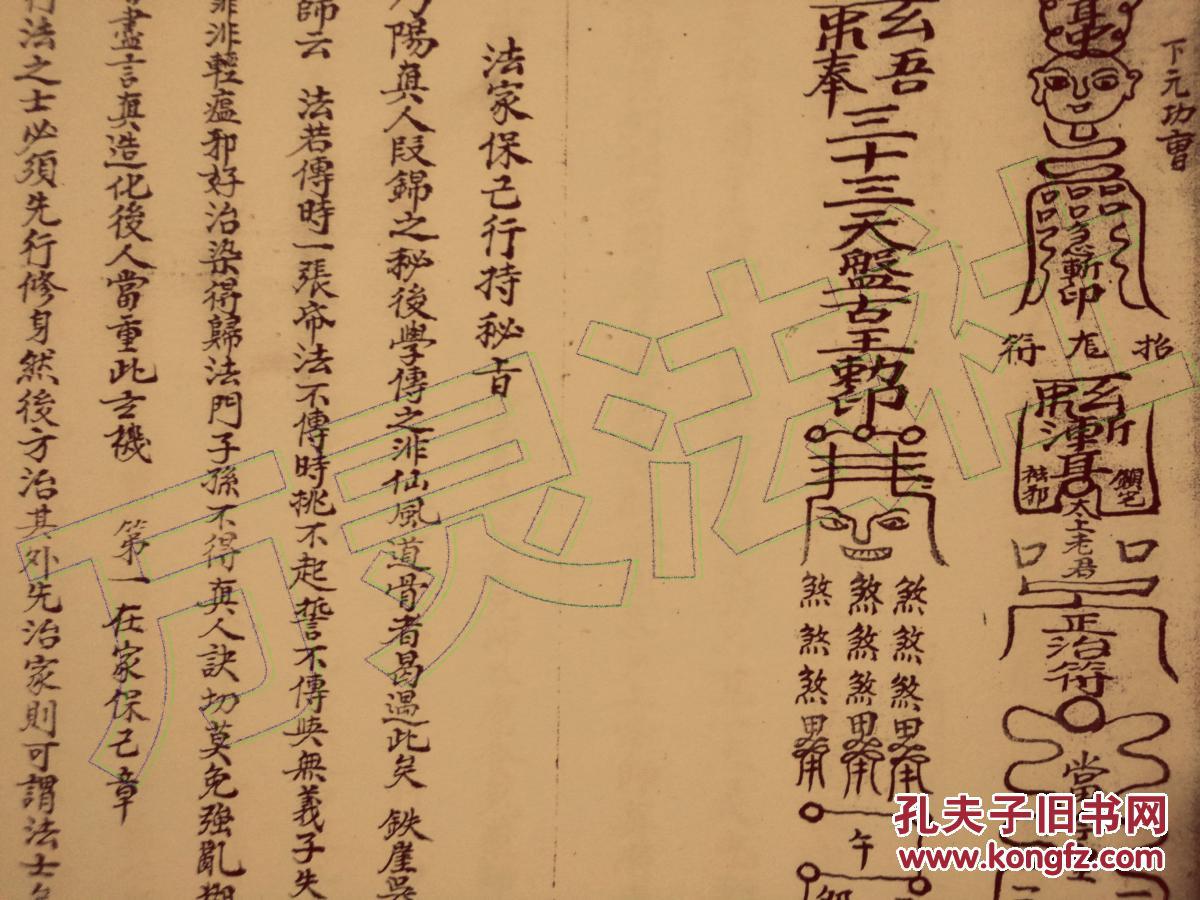 下元功曹
急斬印
抬
符
玄斬
太上老君
正治符
玄吾
奉
三十三天盤古王勅印
煞煞煞
煞煞煞
煞煞煞
午
法家保己行持秘旨
陽真人段錦之秘後學傳之非仙風道骨者曷遇此矣 鉄崖吳
師云 法若傳時一張帋法不傳時挑不起誓不傳與無義子失
罪非輕瘟邪好治染得歸法門子孫不得真人訣切莫免強亂
盡言真造化後人當重此玄機 第一在家保己章
行法之士必須先行修身然後方治其外先治家則可謂法士
万灵法社
孔夫子旧书网
www.kongfz.com